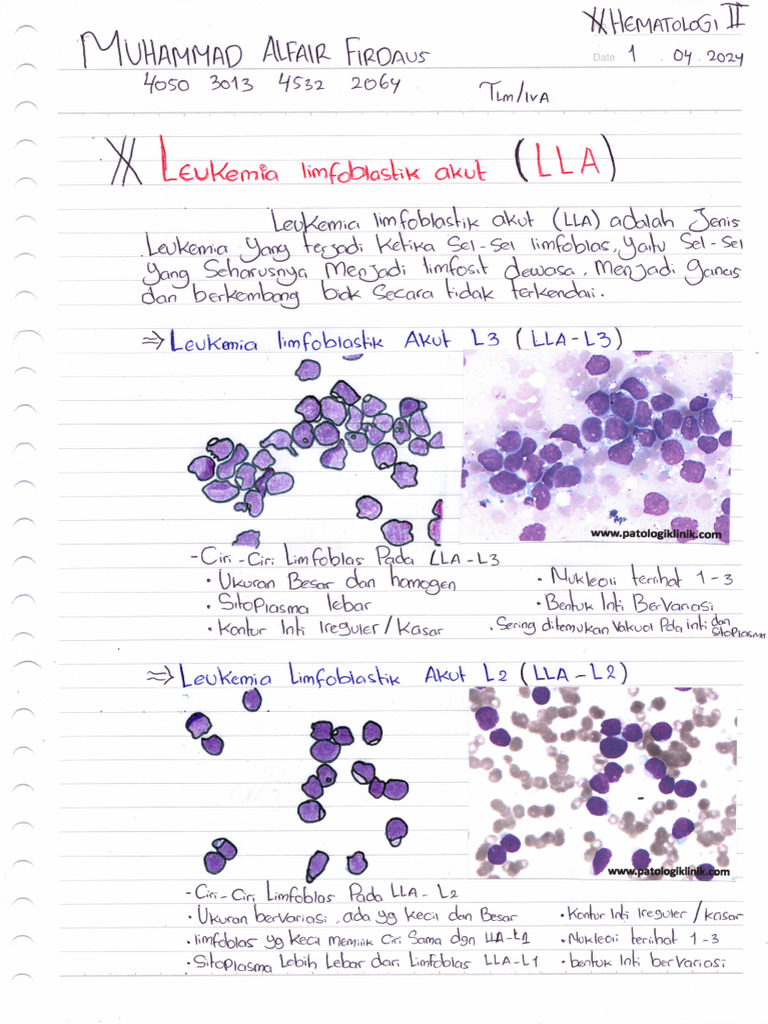 ※ HEMATOLOGI II
MUHAMMAD ALFAIR FIRDAUS
Date 1 . 04 . 2024
4050 3013 4532 2064
TLM/IVA
※ Leukemia limfoblastik akut (LLA)
Leukemia limfoblastik akut (LLA) adalah Jenis
Leukemia yang terjadi ketika sel-sel limfoblas, yaitu sel-sel
yang seharusnya menjadi limfosit dewasa, menjadi ganas
dan berkembang biak secara tidak terkendai.
⇒ Leukemia limfoblastik Akut L3 (LLA-L3)
www.patologiklinik.com
- Ciri-Ciri Limfoblas Pada LLA-L3
• Ukuran Besar dan homogen
• Nukleoli terlihat 1-3
• Sitoplasma lebar
• Bentuk Inti Bervariasi
• Kontur Inti Ireguler/Kasar
• Sering ditemukan Vakuol Pda inti dan sitoplasma
⇒ Leukemia Limfoblastik Akut L2 (LLA-L2)
www.patologiklinik.com
- Ciri-Ciri Limfoblas Pada LLA-L2
• Ukuran bervariasi, ada yg kecil dan Besar
• Kontur Inti Ireguler/kasar
• limfoblas yg kecil memiliki Ciri Sama dgn LLA-L1
• Nukleoli terlihat 1-3
• Sitoplasma Lebih Lebar dari Limfoblas LLA-L1
• bentuk Inti bervariasi